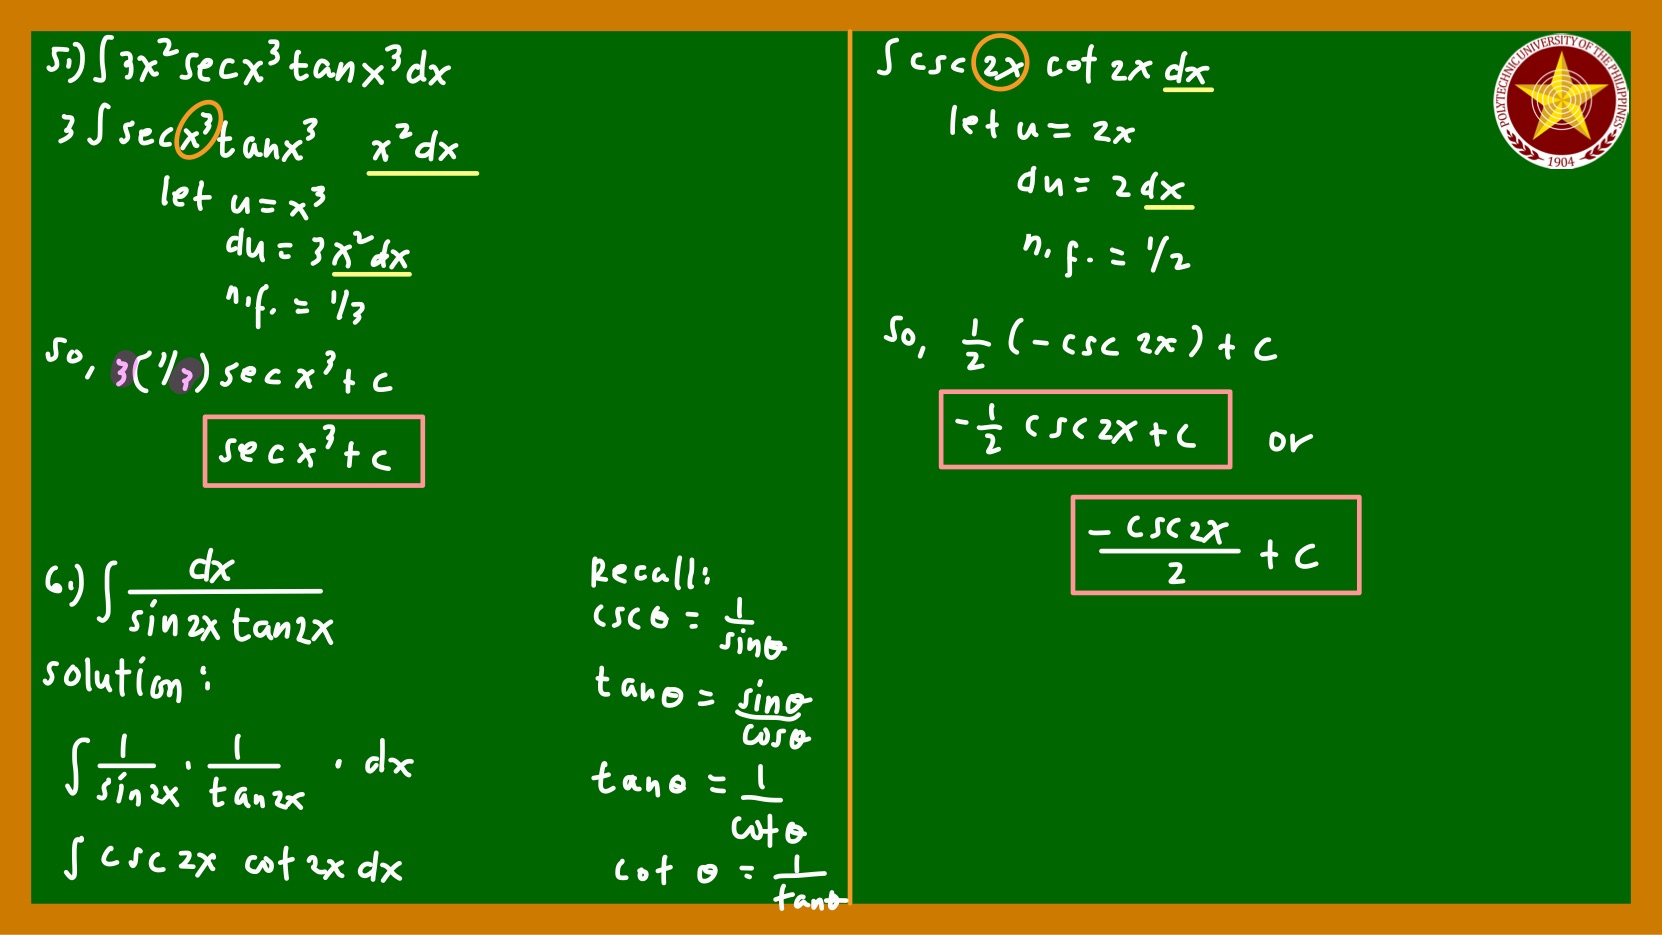 5.) ∫ 3x² sec x³ tan x³ dx
3 ∫ sec x³ tan x³ x² dx
let u = x³
du = 3x² dx
n.f. = 1/3
so, 3(1/3) sec x³ + c
sec x³ + c
6.) ∫ dx / (sin 2x tan 2x)
solution:
∫ 1/sin 2x · 1/tan 2x · dx
∫ csc 2x cot 2x dx
Recall:
csc θ = 1/sin θ
tan θ = sin θ/cos θ
tan θ = 1/cot θ
cot θ = 1/tan θ
∫ csc 2x cot 2x dx
let u = 2x
du = 2 dx
n.f. = 1/2
so, 1/2 (- csc 2x) + c
- 1/2 csc 2x + c or
- csc 2x / 2 + c
POLYTECHNIC UNIVERSITY OF THE PHILIPPINES
1904